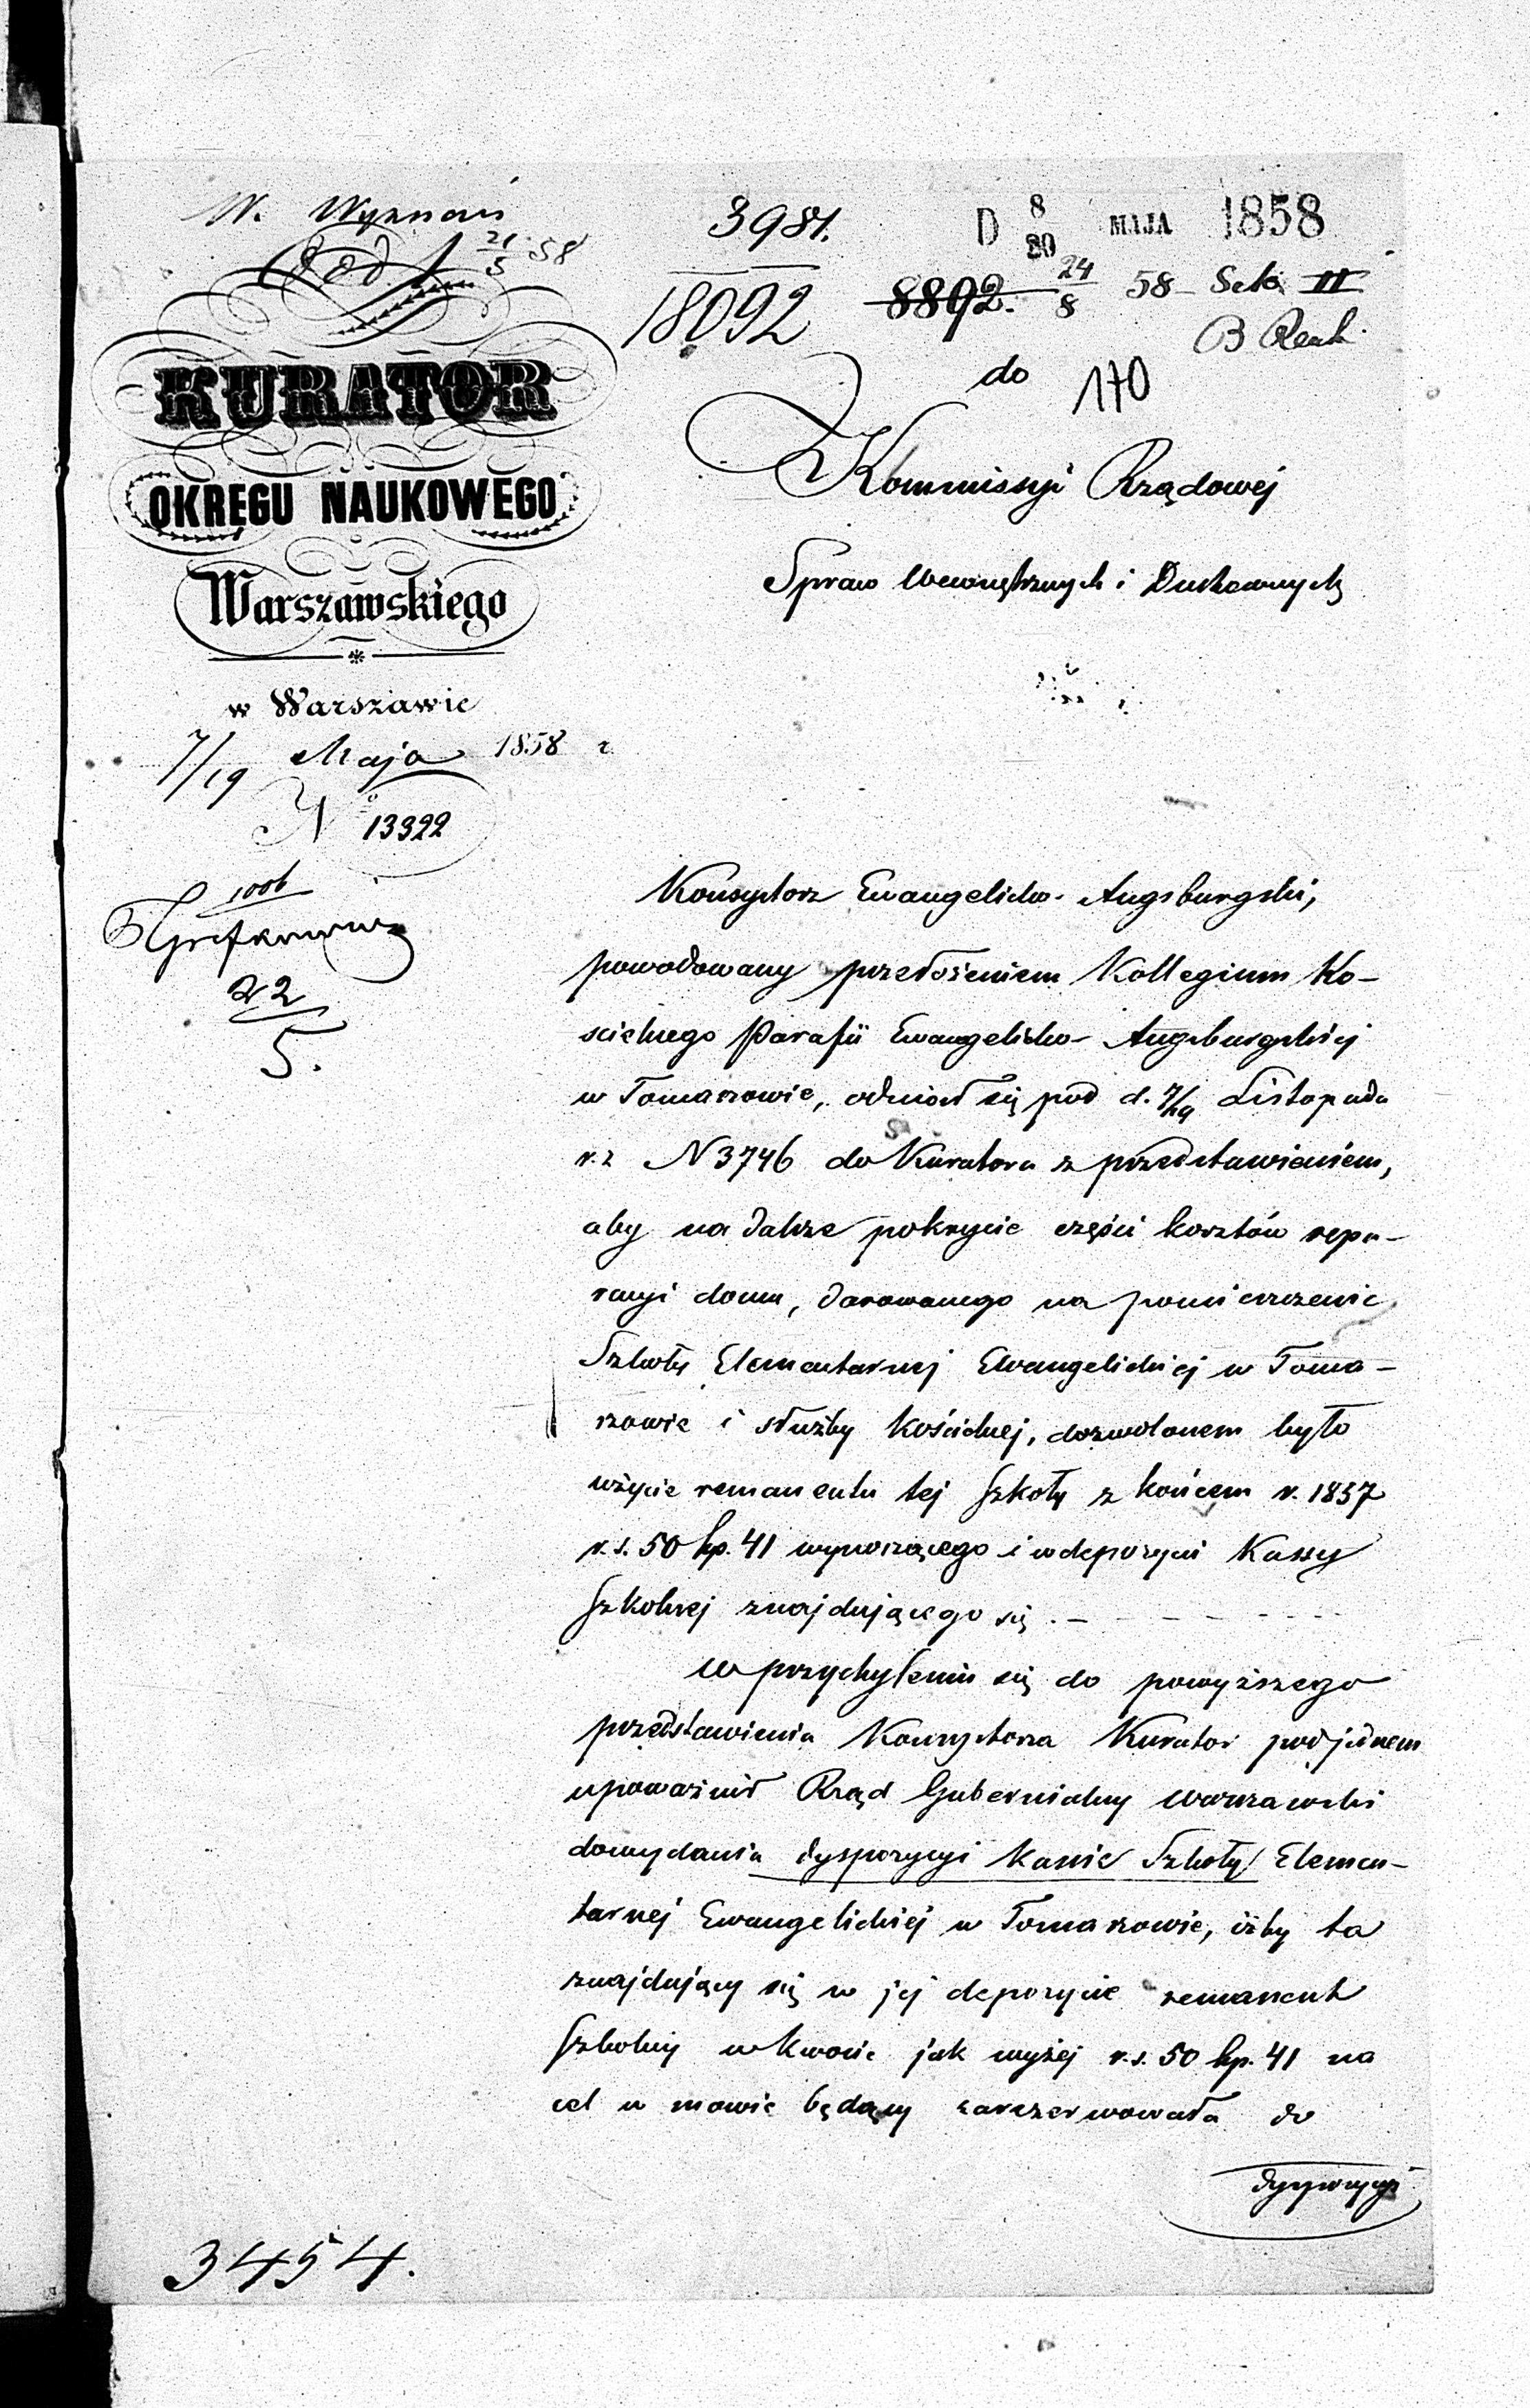 W. Wyznań
21/5 58
3981.
D 8/20 MAJA 1858
18092
8892. 24/8 58 Sek. II
B
do 170
KURATOR
OKRĘGU NAUKOWEGO
Warszawskiego
w Warszawie
7/19 Maja 1858 r
No 13322
22
5.
Kommissyi Rządowéj
Spraw Wewnętrznych i Duchownych
Konsystorz Ewangelicko-Augsburgski,
powodowany przełożeniem Kollegium Ko-
scielnego Parafii Ewangelicko-Augsburgskiej
w Tomaszowie, odniosł się pod d. 7/19 Listopada
r.z N 3746 do Kuratora z przedstawieniem,
aby na dalsze pokrycie części kosztów repa-
racyi domu, darowanego na pomieszczenie
Szkoły Elementarnej Ewangelickiej w Toma-
szowie i służby kościelnej, dozwolonem było
użycie remanentu tej Szkoły z końcem r. 1857
r.s. 50 kp. 41 wynoszącego i w depozycie Kassy
Szkolnej znajdującego się. -
W przychyleniu się do powyższego
przedstawienia Konsystorza Kurator pod jednem
upoważnił Rząd Gubernialny Warszawski
do wydania dyspozycyi Kassie Szkoły Elemen-
tarnej Ewangelickiej w Tomaszowie, iżby ta
znajdujący się w jej depozycie remanent
Szkolny w kwocie jak wyżej r.s. 50 kp. 41 na
cel w mowie będący zarezerwowała do
dyspozycyi
3454.